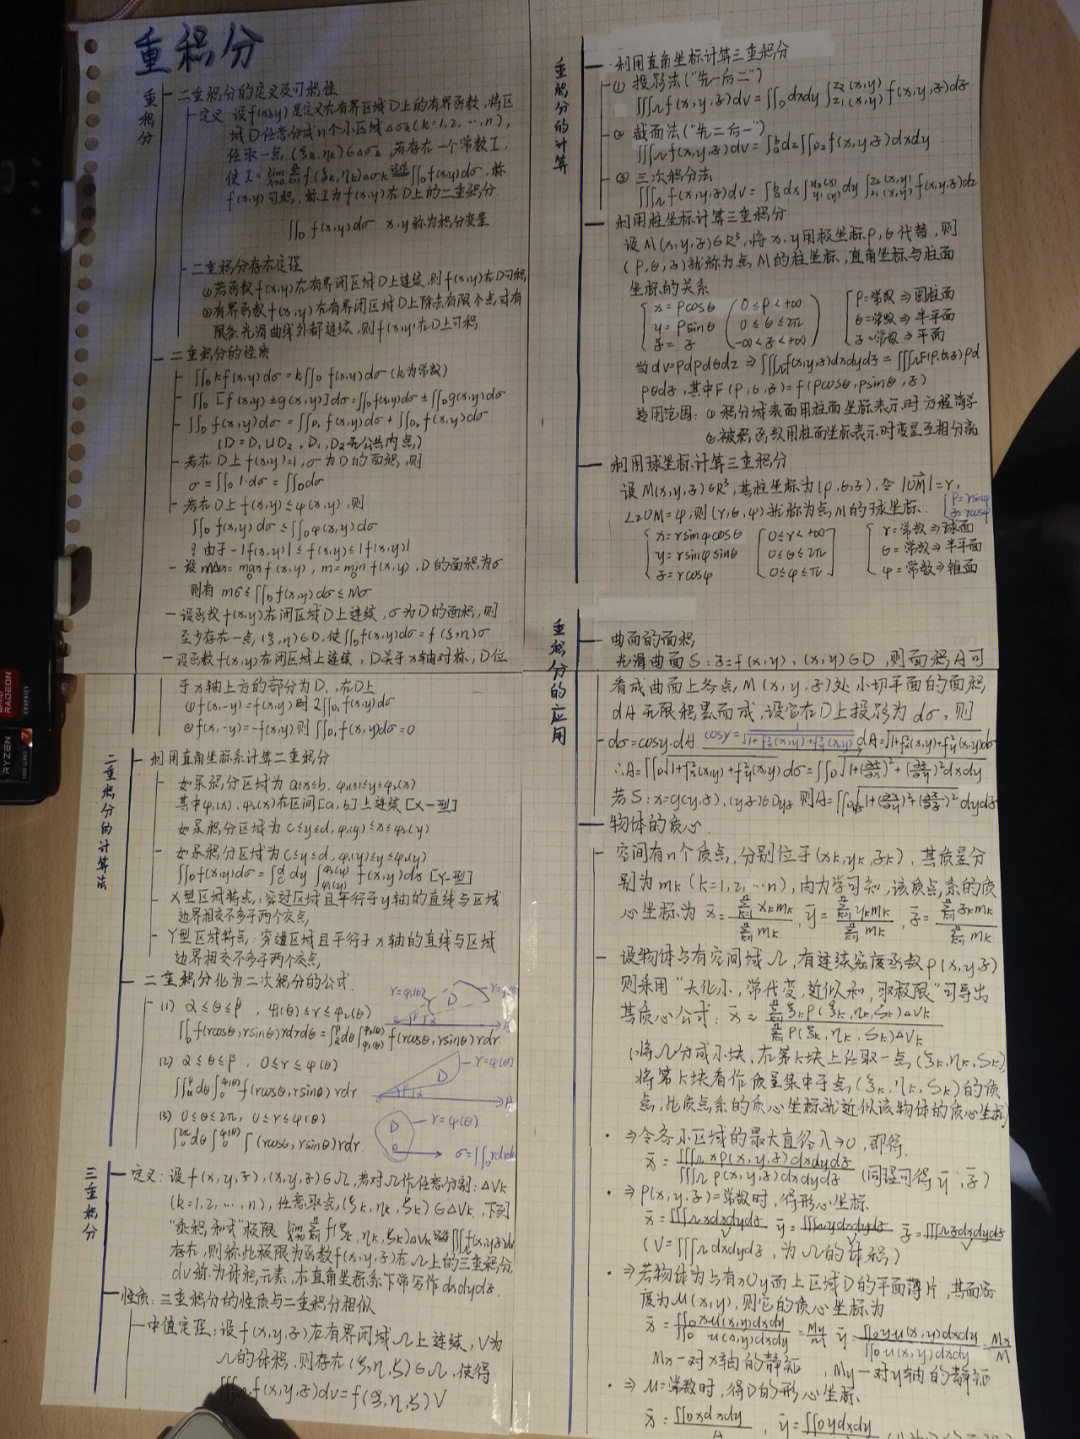 重积分
重积分
二重积分的定义及可积性
定义 设f(x,y)是定义在有界区域D上的有界函数,将区
域D任意分成n个小区域Δσk(k=1,2,…,n),
任取一点(ξk,ηk)∈Δσk,若存在一个常数I,
f(x,y)可积,称I为f(x,y)在D上的二重积分
∬D f(x,y)dσ x,y称为积分变量
二重积分存在定理
①若函数f(x,y)在有界闭区域D上连续,则f(x,y)在D可积
②有界函数f(x,y)在有界闭区域D上除去有限个点或有
限条光滑曲线外都连续,则f(x,y)在D上可积
二重积分的性质
∬D kf(x,y)dσ=k∬D f(x,y)dσ (k为常数)
∬D [f(x,y)±g(x,y)]dσ=∬D f(x,y)dσ±∬D g(x,y)dσ
∬D f(x,y)dσ=∬D₁ f(x,y)dσ+∬D₂ f(x,y)dσ
(D=D₁∪D₂,D₁,D₂无公共内点)
若在D上f(x,y)=1,σ为D的面积,则
σ=∬D 1·dσ=∬D dσ
若在D上f(x,y)≤φ(x,y),则
∬D f(x,y)dσ≤∬D φ(x,y)dσ
由于-|f(x,y)|≤f(x,y)≤|f(x,y)|
则有 mσ≤∬D f(x,y)dσ≤Mσ
设函数f(x,y)在闭区域D上连续,σ为D的面积,则
至少存在一点(ξ,η)∈D,使∬D f(x,y)dσ=f(ξ,η)σ
设函数f(x,y)在闭区域上连续,D关于x轴对称,D位
于x轴上方的部分为D₁,在D上
①f(x,-y)=f(x,y)则2∬D₁ f(x,y)dσ
②f(x,-y)=-f(x,y)则∬D f(x,y)dσ=0
二重积分的计算法
利用直角坐标系计算二重积分
如果积分区域为 a≤x≤b,φ₁(x)≤y≤φ₂(x)
其中φ₁(x),φ₂(x)在区间[a,b]上连续[X-型]
如果积分区域为 c≤y≤d,φ₁(y)≤x≤φ₂(y)
如果积分区域为 c≤y≤d,φ₁(y)≤y≤φ₂(y)
∬D f(x,y)dσ=∫c^d dy∫φ₁(y)^φ₂(y) f(x,y)dx [Y-型]
X型区域特点:穿过区域且平行于y轴的直线与区域
边界相交不多于两个交点
Y型区域特点:穿过区域且平行于x轴的直线与区域
边界相交不多于两个交点
二重积分化为二次积分的公式
(1) α≤θ≤β,φ₁(θ)≤r≤φ₂(θ)
∬D f(rcosθ,rsinθ)rdrdθ=∫α^β dθ∫φ₁(θ)^φ₂(θ) f(rcosθ,rsinθ)rdr
(2) α≤θ≤β,0≤r≤φ(θ)
∫α^β dθ∫0^φ(θ) f(rcosθ,rsinθ)rdr
D
r=φ(θ)
(3) 0≤θ≤2π,0≤r≤φ(θ)
∫0^2π dθ∫0^φ(θ) f(rcosθ,rsinθ)rdr
D
r=φ(θ)
三重积分
定义:设f(x,y,z),(x,y,z)∈Ω,若对Ω作任意分割:ΔVk
(k=1,2,…,n),任意取点(ξk,ηk,ζk)∈ΔVk,下列
存在,则称此极限为函数f(x,y,z)在Ω上的三重积分
dv称为体积元素,在直角坐标系下常写作dxdydz.
性质:三重积分的性质与二重积分相似
中值定理:设f(x,y,z)在有界闭域Ω上连续,V为
Ω的体积,则存在(ξ,η,ζ)∈Ω,使得
∭Ω f(x,y,z)dv=f(ξ,η,ζ)V
重积分的计算
利用直角坐标计算三重积分
① 投影法("先一后二")
∭Ω f(x,y,z)dv=∬D dxdy∫z₁(x,y)^z₂(x,y) f(x,y,z)dz
② 截面法("先二后一")
∭Ω f(x,y,z)dv=∫a^b dz∬Dz f(x,y,z)dxdy
③ 三次积分法
∭Ω f(x,y,z)dv=∫a^b dx∫y₁(x)^y₂(x) dy∫z₁(x,y)^z₂(x,y) f(x,y,z)dz
利用柱坐标计算三重积分
设M(x,y,z)∈R³,将x,y用极坐标ρ,θ代替,则
(ρ,θ,z)就称为点M的柱坐标,直角坐标与柱面
坐标的关系
x=ρcosθ 0≤ρ<+∞ ρ=常数⇒圆柱面
y=ρsinθ 0≤θ≤2π θ=常数⇒半平面
z=z -∞<z<+∞ z=常数⇒平面
当dv=ρdρdθdz⇒∭Ω f(x,y,z)dxdydz=∭Ω F(ρ,θ,z)ρd
ρdθdz,其中F(ρ,θ,z)=f(ρcosθ,ρsinθ,z)
适用范围:①积分域表面用柱面坐标表示时方程简单
②被积函数用柱面坐标表示时变量互相分离
利用球坐标计算三重积分
设M(x,y,z)∈R³,其柱坐标为(ρ,θ,z),令|OM|=r,
∠zOM=φ,则(r,θ,φ)就称为点M的球坐标. ρ=rsinφ
z=rcosφ
x=rsinφcosθ 0≤r<+∞ r=常数⇒球面
y=rsinφsinθ 0≤θ≤2π θ=常数⇒半平面
z=rcosφ 0≤φ≤π φ=常数⇒锥面
重积分的应用
曲面的面积
光滑曲面S:z=f(x,y),(x,y)∈D,则面积A可
看成曲面上各点M(x,y,z)处小切平面的面积
dA无限积累而成,设它在D上投影为dσ,则
dσ=cosγ·dA cosγ=1/√(1+fx²(x,y)+fy²(x,y)) dA=√(1+fx²(x,y)+fy²(x,y))dσ
∴A=∬D √(1+fx²(x,y)+fy²(x,y))dσ=∬D √(1+(∂z/∂x)²+(∂z/∂y)²)dxdy
若S:x=g(y,z),(y,z)∈Dyz 则A=∬Dyz √(1+(∂x/∂y)²+(∂x/∂z)²)dydz
物体的质心
空间有n个质点,分别位于(xk,yk,zk),其质量分
别为mk(k=1,2,…n),由力学可知,该质点系的质
心坐标为
设物体占有空间域Ω,有连续密度函数ρ(x,y,z)
则采用"大化小,常代变,近似和,取极限"可导出
其质心公式:
(将Ω分成小块,在第k块上任取一点(ξk,ηk,ζk),
将第k块看作质量集中于点(ξk,ηk,ζk)的质
点,此质点系的质心坐标就近似该物体的质心坐标)
⇒令各小区域的最大直径λ→0,即得
x̄=∭Ω xρ(x,y,z)dxdydz/∭Ω ρ(x,y,z)dxdydz (同理可得ȳ,z̄)
⇒ρ(x,y,z)=常数时,得形心坐标
x̄=∭Ω xdxdydz/V ȳ=∭Ω ydxdydz/V z̄=∭Ω zdxdydz/V
(V=∭Ω dxdydz,为Ω的体积)
⇒若物体为占有xOy面上区域D的平面薄片,其面密
度为μ(x,y),则它的质心坐标为
x̄=∬D xμ(x,y)dxdy/∬D μ(x,y)dxdy=My/M ȳ=∬D yμ(x,y)dxdy/∬D μ(x,y)dxdy=Mx/M
Mx—对x轴的静矩,My—对y轴的静矩
⇒μ=常数时,得D的形心坐标
x̄=∬D xdxdy/A,ȳ=∬D ydxdy
RADEON
RYZEN